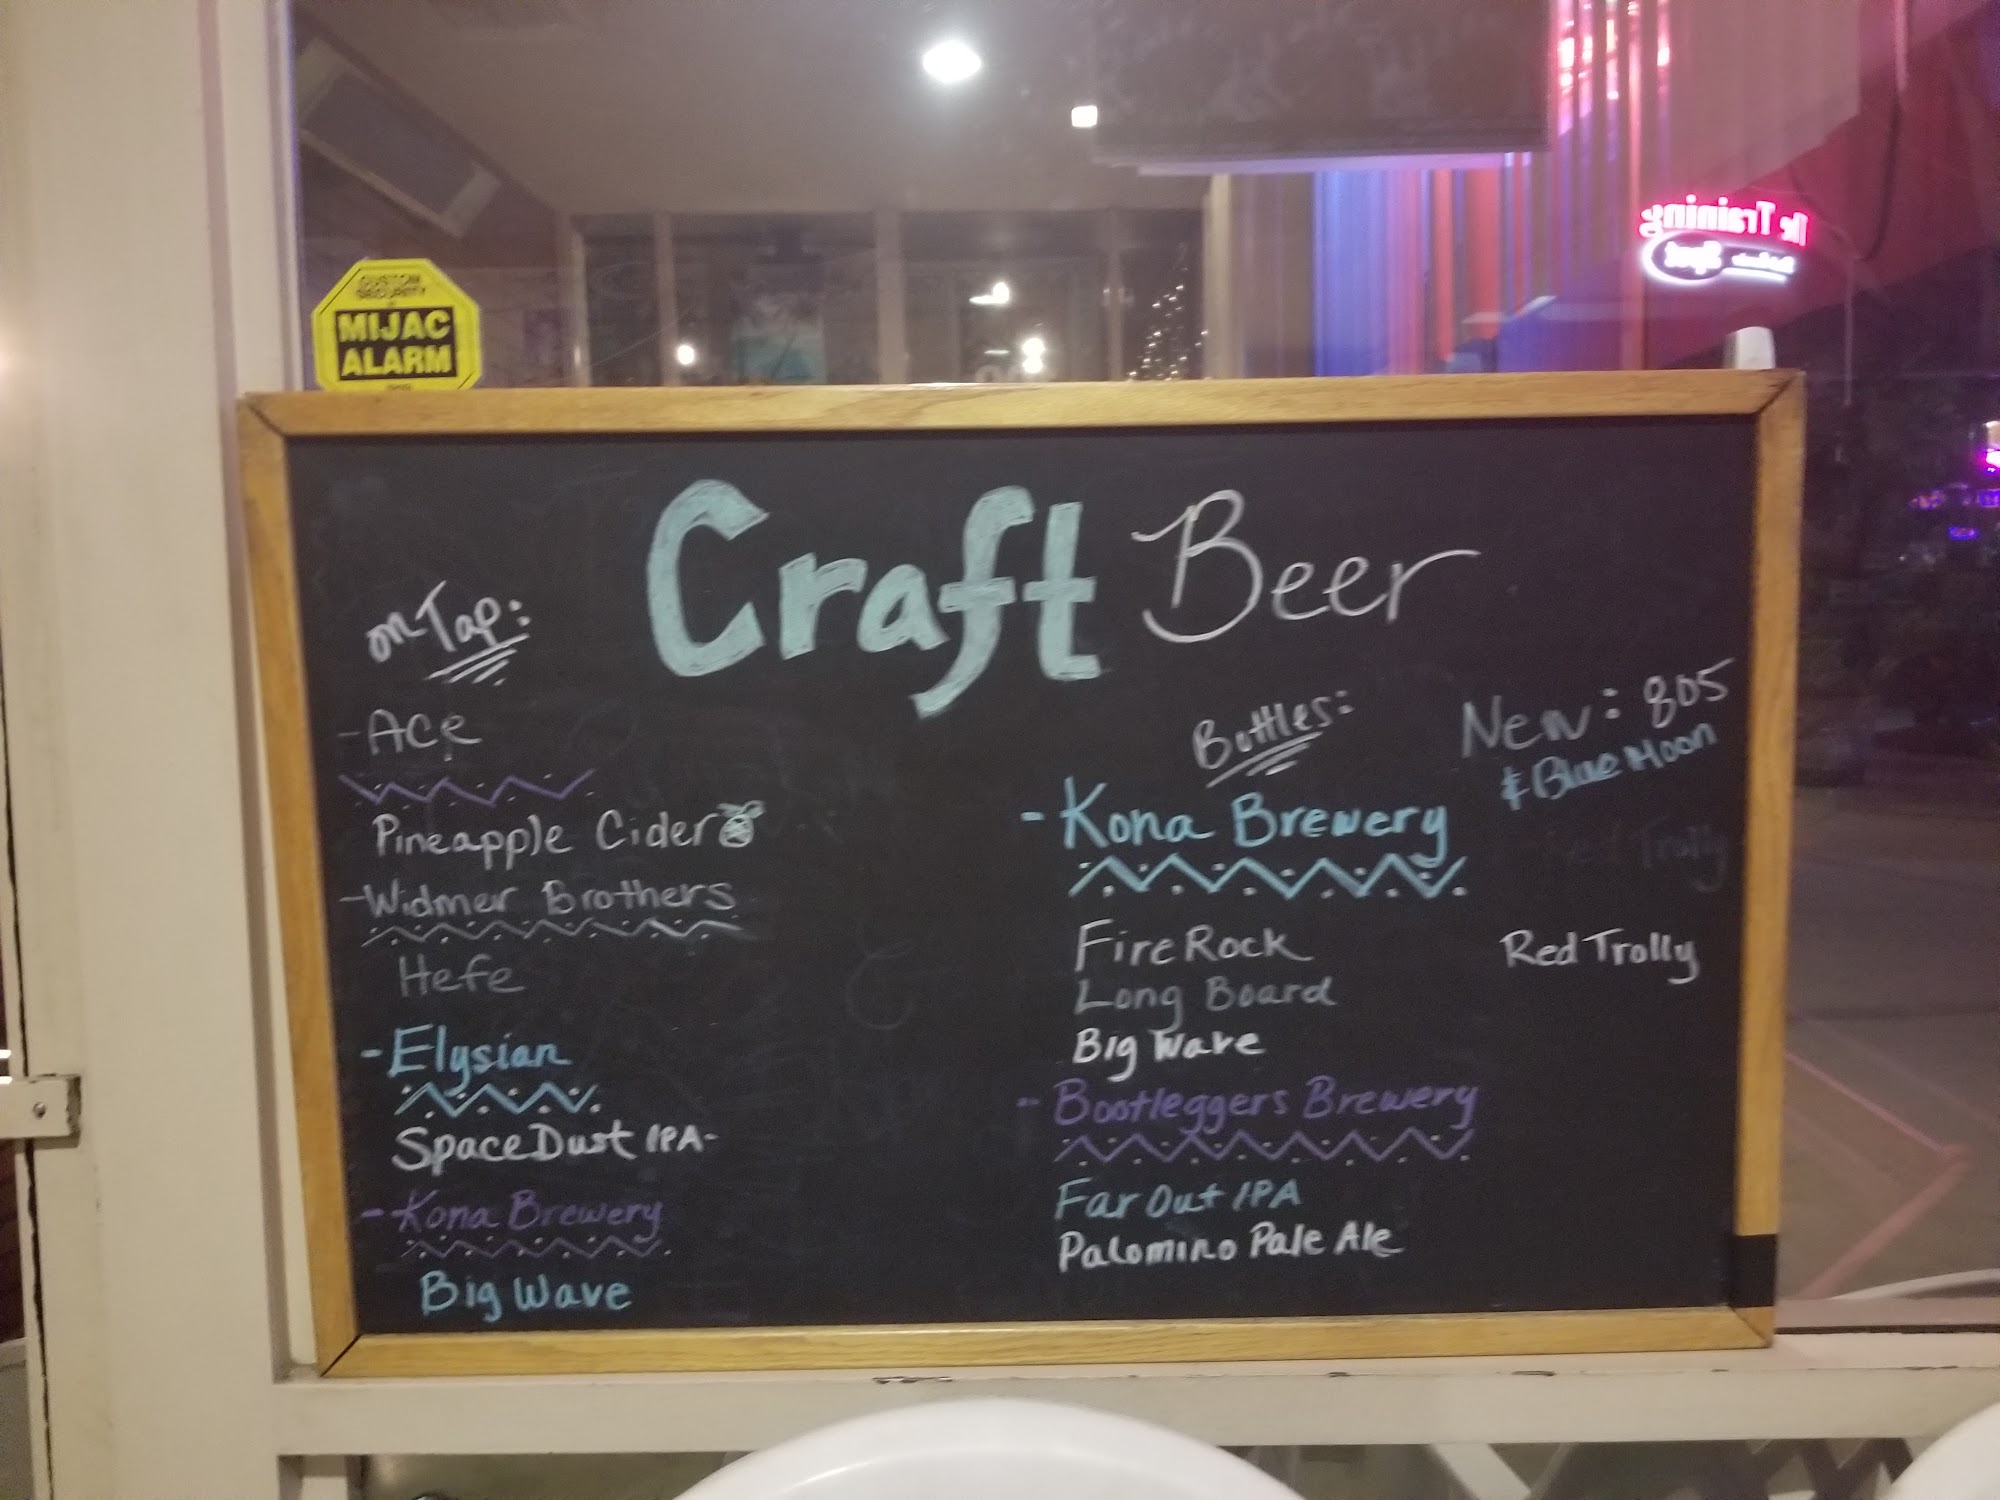 CUSTOM
SECURITY
MIJAC
ALARM
Training
Spot
Craft Beer
on Tap:
- Ace
Pineapple Cider
- Widmer Brothers
Hefe
- Elysian
Space Dust IPA-
- Kona Brewery
Big Wave
Bottles:
- Kona Brewery
Fire Rock
Long Board
Big Wave
- Bootleggers Brewery
Far Out IPA
Palomino Pale Ale
New: 805
& Blue Moon
Red Trolly
Red Trolly